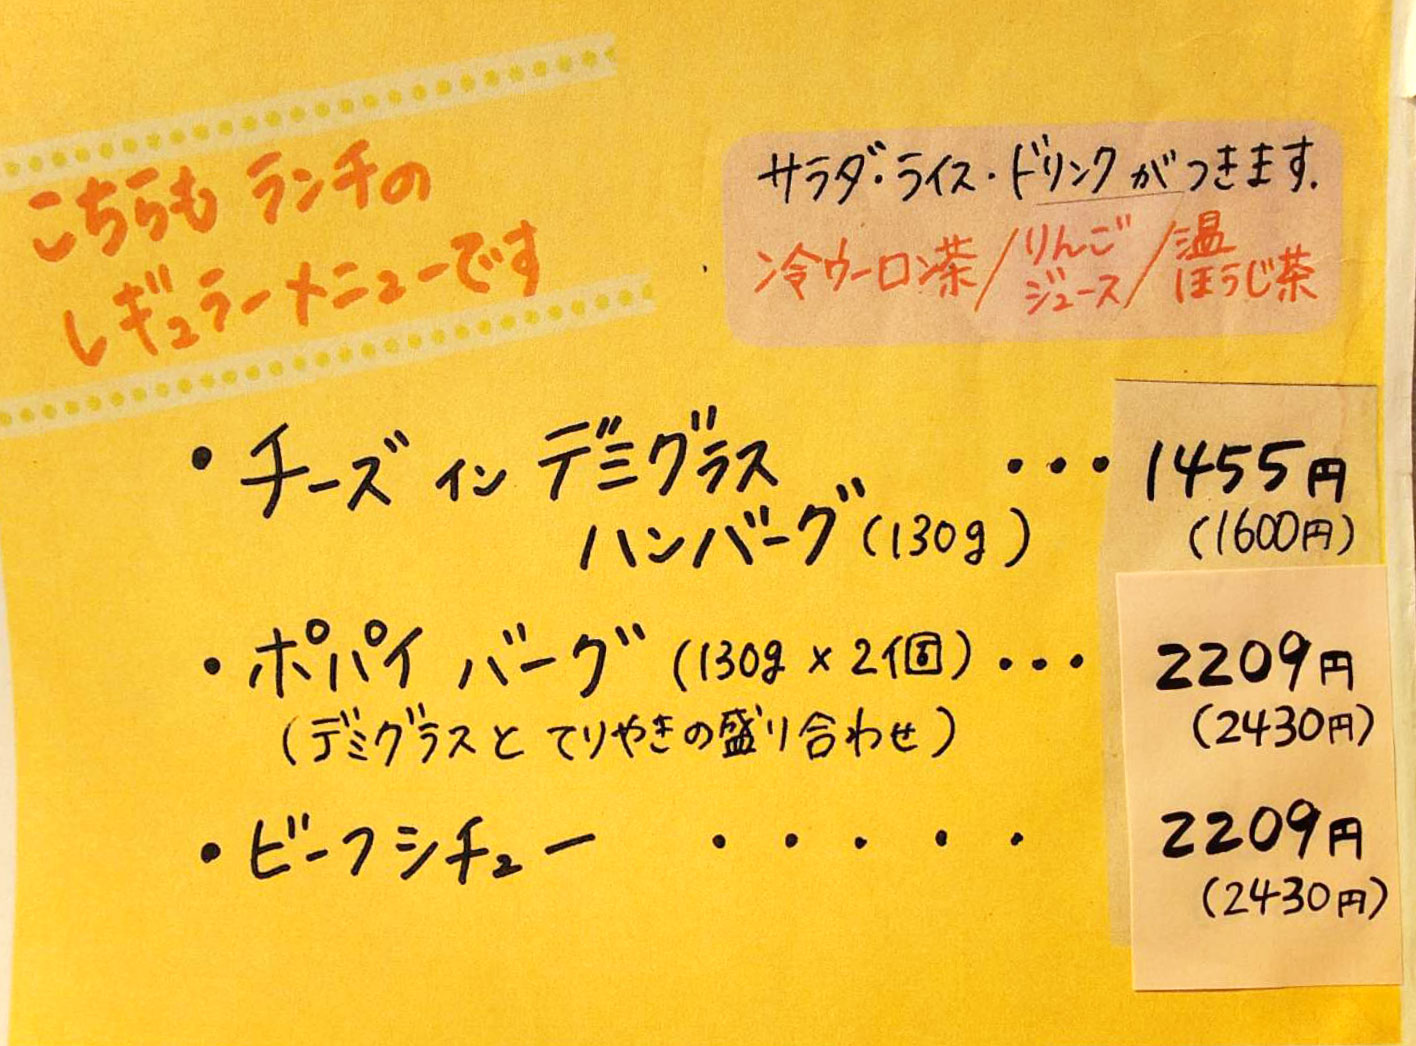 こちらも ランチの
レギュラーメニューです
サラダ・ライス・ドリンクがつきます.
冷ウーロン茶/りんごジュース/温ほうじ茶
・チーズインデミグラス
ハンバーグ(130g) ・・・1455円
(1600円)
・ポパイバーグ(130g×2個)・・・ 2209円
(デミグラスとてりやきの盛り合わせ) (2430円)
・ビーフシチュー ・・・・・ 2209円
(2430円)